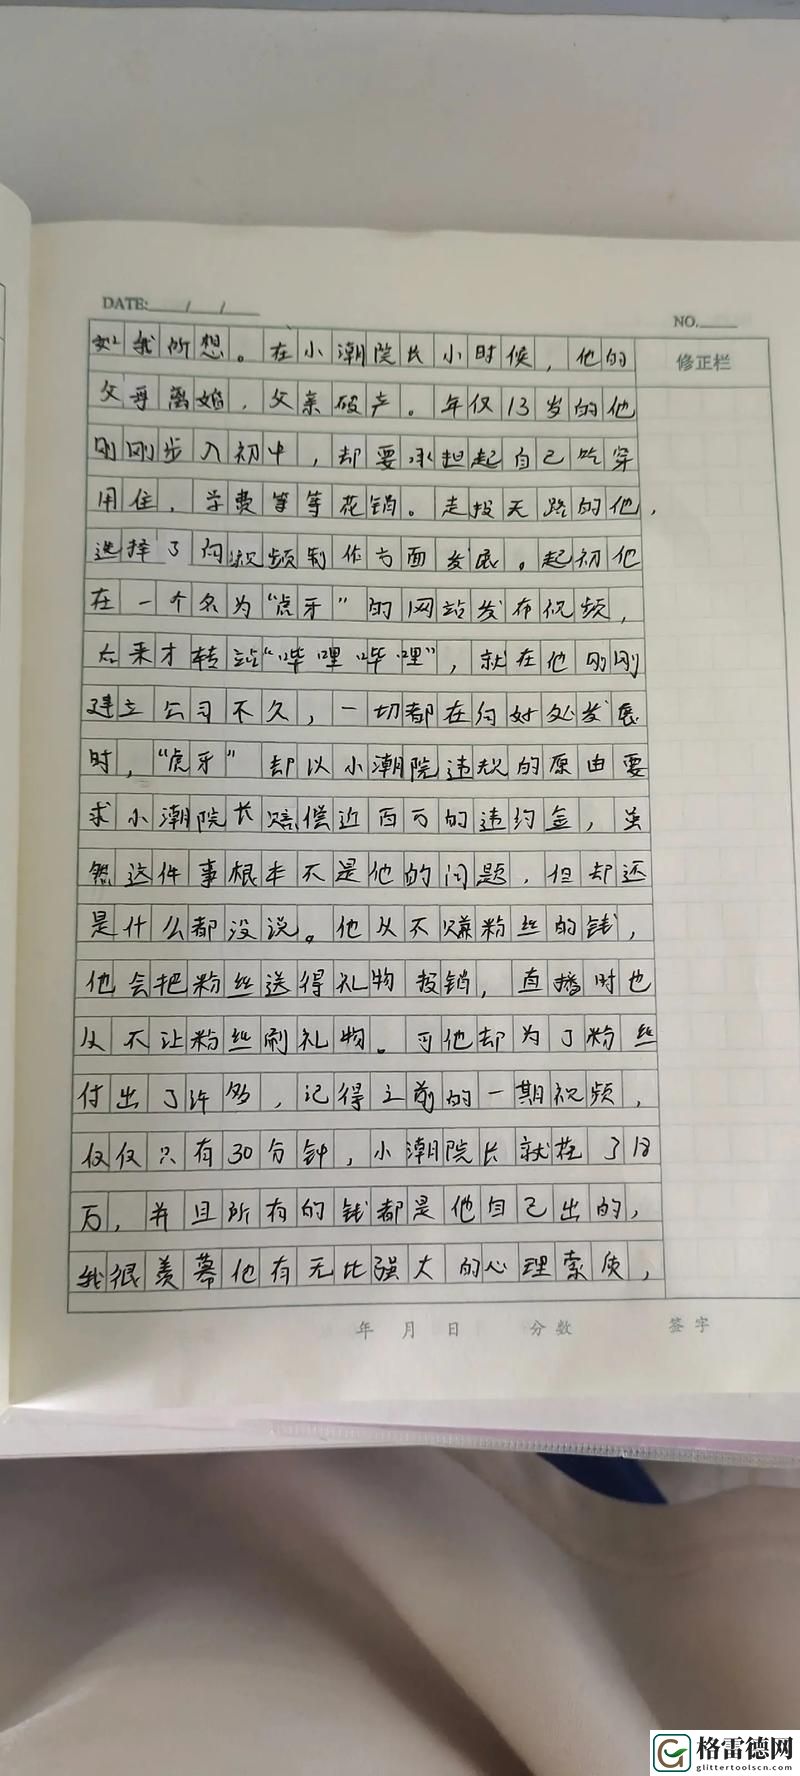 DATE: / /
NO.
修正栏
如我所想。在小潮院长小时候，他的
父母离婚，父亲破产。年仅13岁的他
刚刚步入初中，却要承担起自己吃穿
用住，学费等等花销。走投无路的他，
选择了向视频制作方面发展。起初他
在一个名为“虎牙”的网站发布视频，
后来才转站“哔哩哔哩”，就在他刚刚
建立公司不久，一切都在向好处发展
时，“虎牙”却以小潮院违规的原由要
求小潮院长赔偿近百万的违约金，虽
然这件事根本不是他的问题，但却还
是什么都没说。他从不赚粉丝的钱，
他会把粉丝送得礼物报销，直播时也
从不让粉丝刷礼物。可他却为了粉丝
付出了许多，记得之前的一期视频，
仅仅只有30分钟，小潮院长就花了18
万，并且所有的钱都是他自己出的，
我很羡慕他有无比强大的心理素质，
年 月 日 分数 签字
格雷德网
glittertoolscn.com